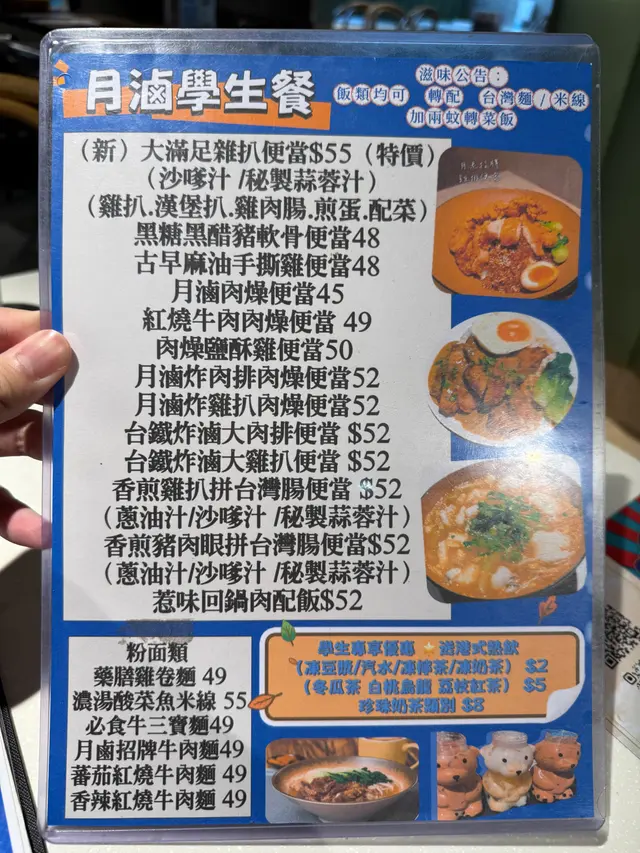 月滷學生餐
滋味公告：
飯類均可 轉配 台灣麵/米線
加兩蚊轉菜飯
（新）大滿足雜扒便當$55（特價）
（沙嗲汁 /秘製蒜蓉汁）
（雞扒.漢堡扒.雞肉腸.煎蛋.配菜）
黑糖黑醋豬軟骨便當48
古早麻油手撕雞便當48
月滷肉燥便當45
紅燒牛肉肉燥便當 49
肉燥鹽酥雞便當50
月滷炸肉排肉燥便當52
月滷炸雞扒肉燥便當52
台鐵炸滷大肉排便當 $52
台鐵炸滷大雞扒便當 $52
香煎雞扒拼台灣腸便當 $52
（蔥油汁/沙嗲汁 /秘製蒜蓉汁）
香煎豬肉眼拼台灣腸便當$52
（蔥油汁/沙嗲汁 /秘製蒜蓉汁）
惹味回鍋肉配飯$52
粉面類
藥膳雞卷麵 49
濃湯酸菜魚米線 55
必食牛三寶麵49
月鹵招牌牛肉麵49
蕃茄紅燒牛肉麵 49
香辣紅燒牛肉麵 49
學生專享優惠 送港式熱飲
（凍豆漿/汽水/凍檸茶/凍奶茶） $2
（冬瓜茶 白桃烏龍 荔枝紅茶） $5
珍珠奶茶類別 $8